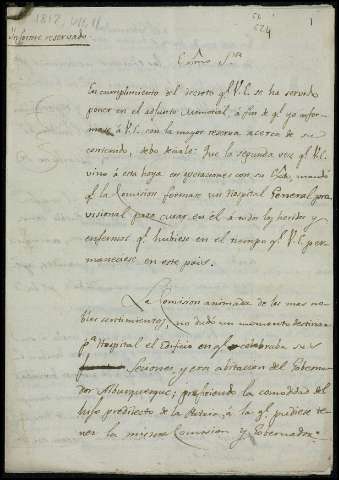 1812, VII, 11
1
Informe reservado
Exmo. Sor.
En cumplimiento del decreto qe. V.E. se ha servido
poner en el adjunto memorial, á fin de qe. yo infor-
mase á V.E. con la mayor reserva acerca de su
contenido, debo decirle: Que la segunda vez qe. V.E.
vino á esta hoya en operaciones con su mandó
qe. la Comision formase un Hospital General pro-
visional para curar en él á todos los heridos y
enfermos qe. hubiese en el tiempo qe. V.E. per-
maneciese en este pais.
La Comision animada de los mas no-
bles sentimientos, no dudó un momento destinar
pa. Hospital el Edificio en qe. celebraba sus
Sesiones, y era abitacion del Gober-
nador Alburquerque; prefiriendo la comodidad del
hijo predilecto de la Patria, á la qe. pudiese te-
ner la misma Comision y Gobernador.